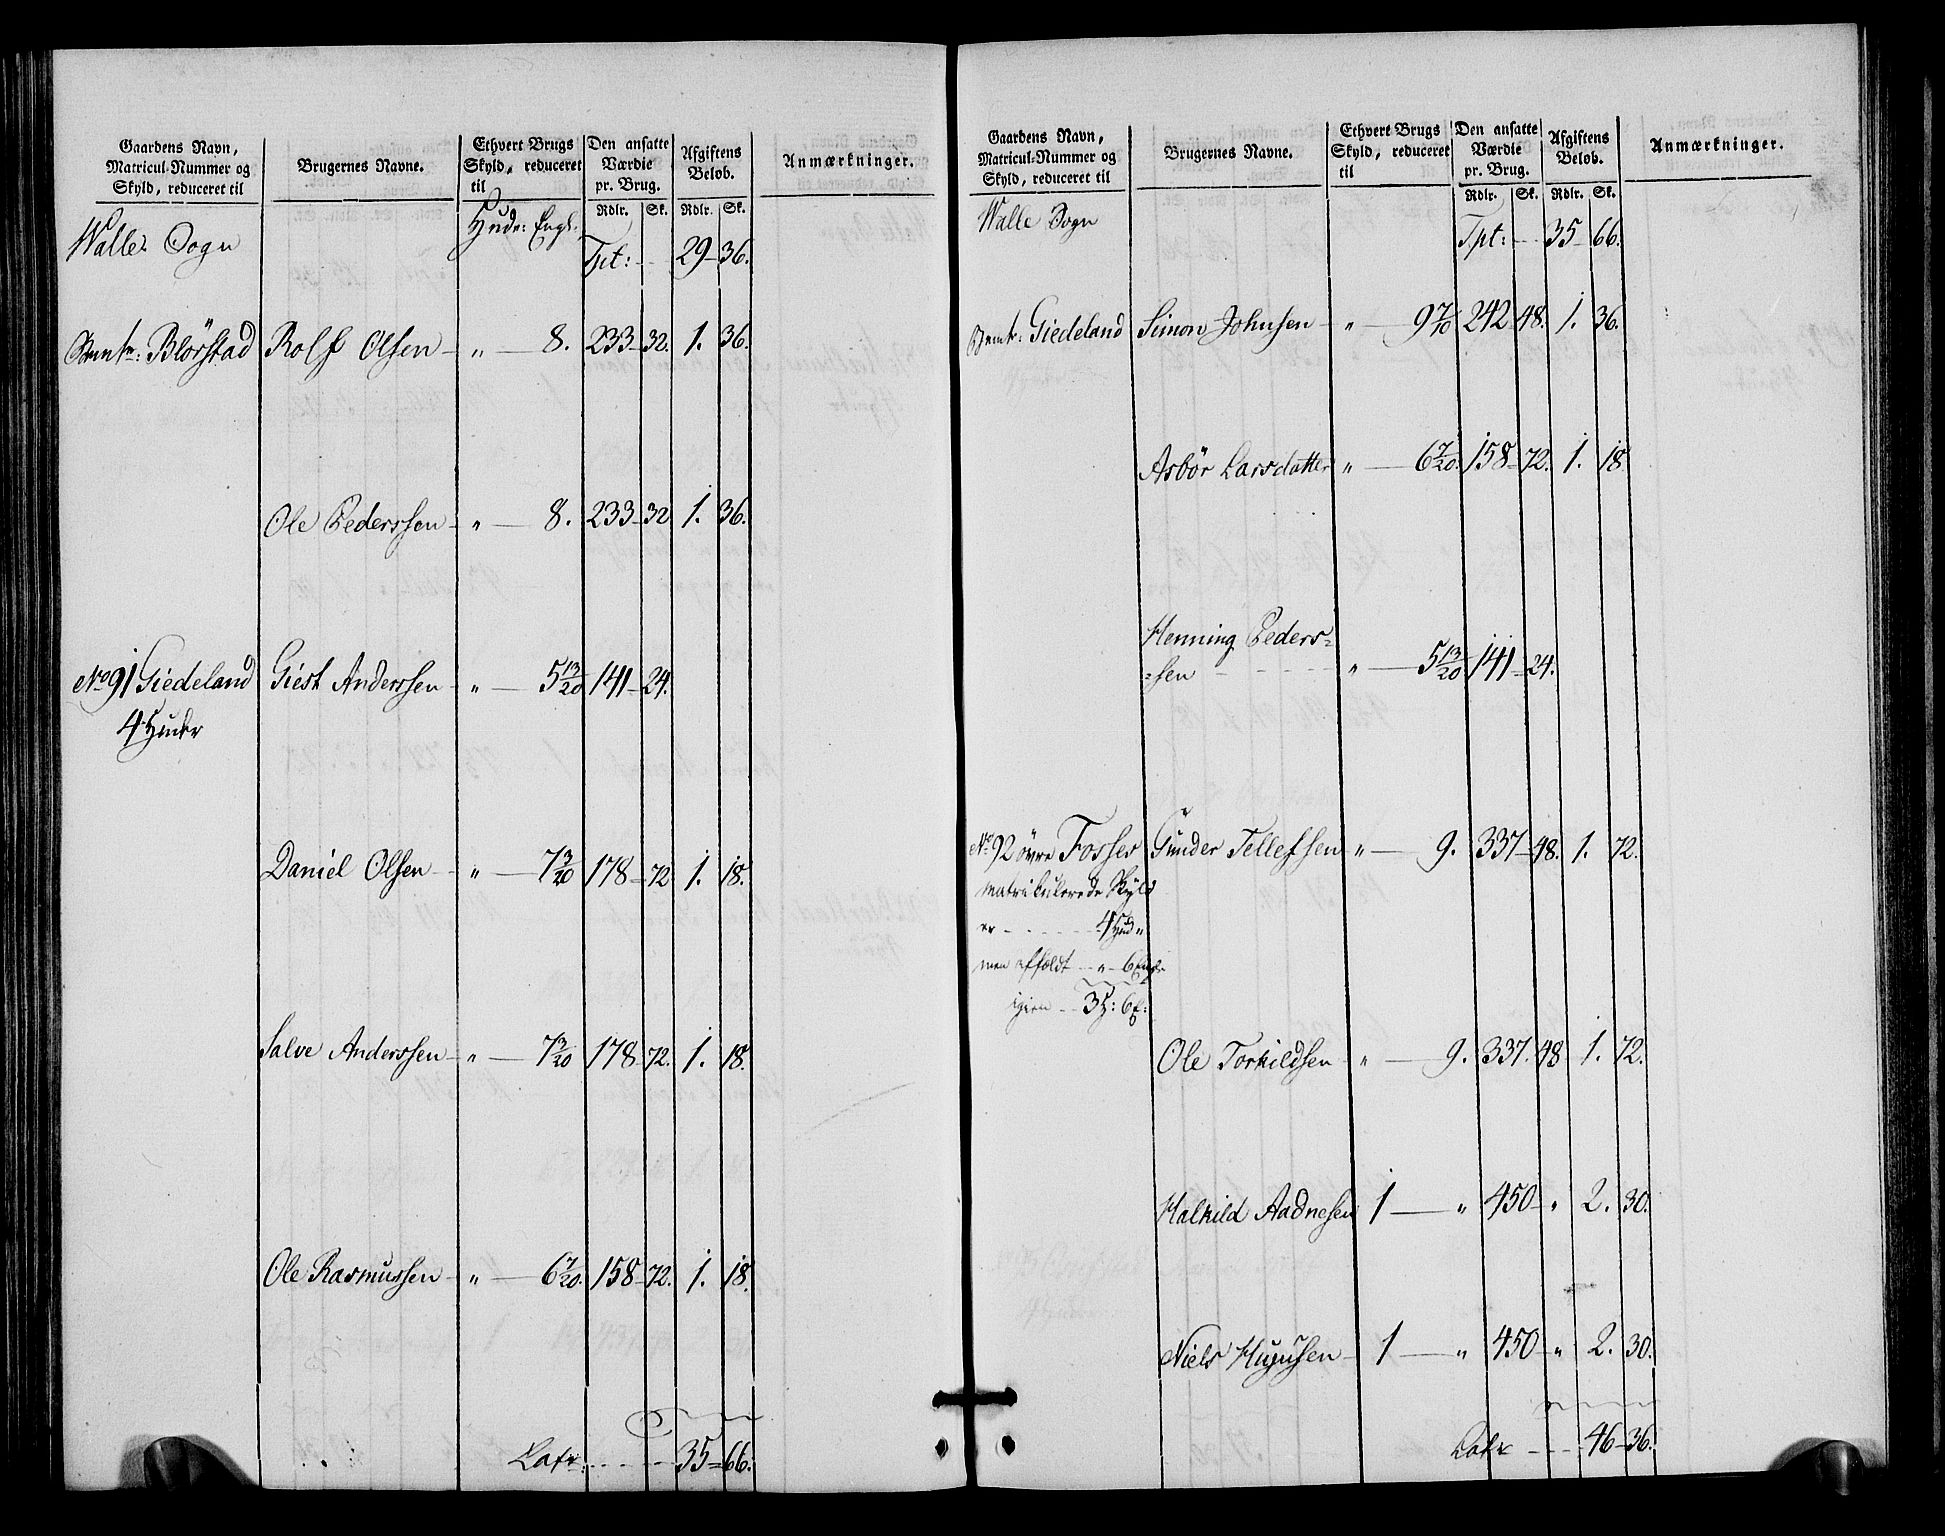 Gaardens Navn, Matricul-Nummer og Skyld, reduceret til | Brugernes Navne. | Ethvert Brugs Skyld, reduceret til | Den ansatte Værdie pr. Brug. Rdlr. Sk. | Afgiftens Beløb. Rdlr. Sk. | Anmærkninger.
Walle Sogn Hudr: Engl. Tpt: 29 36.
Bemte: Blörstad Rolf Olsen " 8. 233 32. 1. 36.
Ole Pederssen " 8. 233 32 1. 36.
No 91 Giedeland Giest Anderssen " 5 13/20 141 24.
4 Huder
Daniel Olsen " 7 3/20 178 72 1. 18.
Salve Anderssen " 7 3/20 178 72. 1. 18.
Ole Rasmussen " 6 7/20. 158 72. 1. 18.
Latr: 35 66.
Gaardens Navn, Matricul-Nummer og Skyld, reduceret til | Brugernes Navne. | Ethvert Brugs Skyld, reduceret til | Den ansatte Værdie pr. Brug. Rdlr. Sk. | Afgiftens Beløb. Rdlr. Sk. | Anmærkninger.
Walle Sogn Tpt: 35 66.
Bemte: Giedeland Simon Johnsen " 9 7/10 242 48. 1. 36.
Asbör Larsdatter " 6 7/20. 158 72. 1. 18
Henning Peders=
=sen " 5 13/20 141 24.
No 92 övre Fosses Gunder Tellefsen " 9. 337 48. 1. 72.
matrikulerede Skyld
er 4 Hud "
men affældt " 6 Engl
igien 3 H: 6 E:
Ole Torkildsen " 9. 337 48 1. 72.
Halkild Aadnesen 1 " 450 " 2. 30.
Niels 1 " 450 " 2. 30.
Latr 46 36.